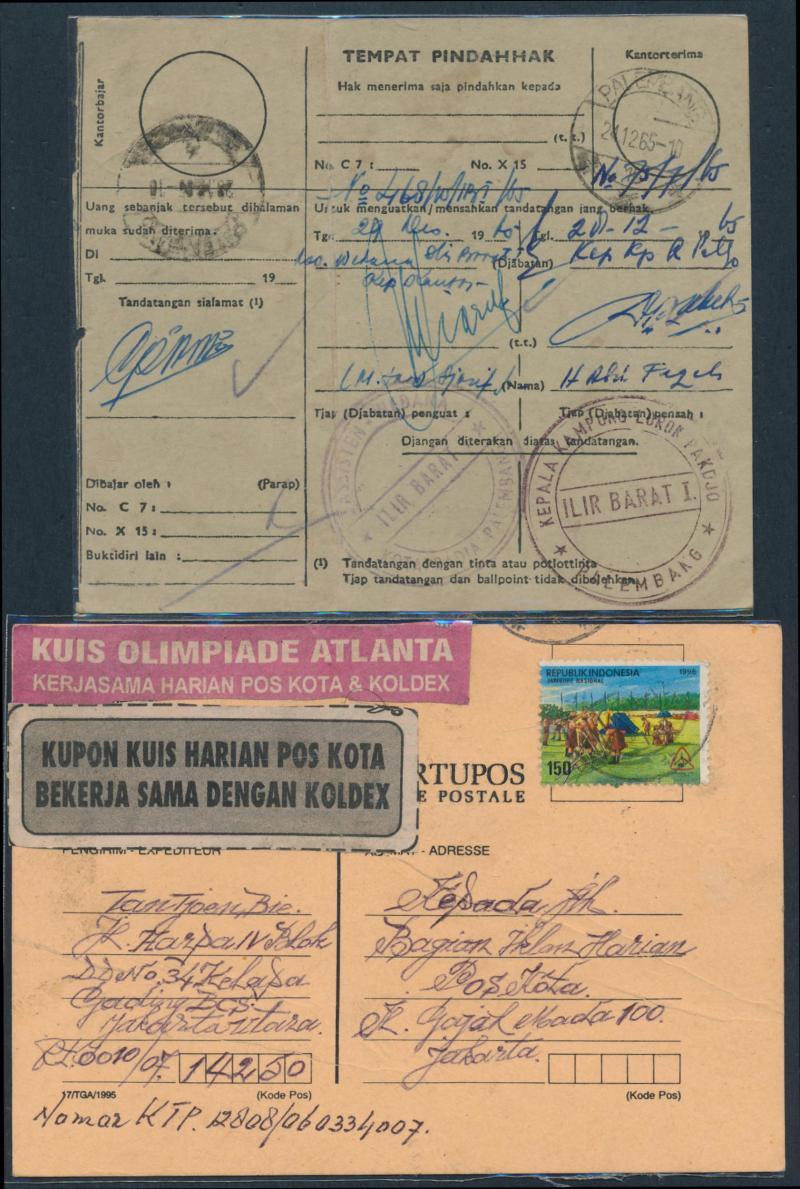 Kantorbajar
TEMPAT PINDAHHAK
Kantorterima
Hak menerima saja pindahkan kepada
PALEMBANG
24.12.65-10
(t. t.)
No. C 7 :
No. X 15
No 75/7/65
No 468/
Uang sebanjak tersebut dihalaman
muka sudah diterima.
Untuk menguatkan/mensahkan tandatangan jang berhak.
Tgl. 29 Des. 19 65
Tgl. 20-12-65
DI
(Djabatan)
Tgl. 19
Tandatangan sialamat (1)
(t. t.)
(Nama)
Tjap (Djabatan) penguat :
Tjap (Djabatan) pensah :
Djangan diterakan diatas tandatangan.
ILIR BARAT I
KEPALA KAMPUNG LOROK PAKDJO
ILIR BARAT I.
PALEMBANG
Dibajar oleh : (Parap)
No. C 7 :
No. X 15 :
Buktidiri lain :
(1) Tandatangan dengan tinta atau potlottinta
Tjap tandatangan dan ballpoint tidak dibolehkan.
KUIS OLIMPIADE ATLANTA
KERJASAMA HARIAN POS KOTA & KOLDEX
KUPON KUIS HARIAN POS KOTA
BEKERJA SAMA DENGAN KOLDEX
REPUBLIK INDONESIA 1996
JAMBORE NASIONAL
150
RTUPOS
E POSTALE
PENGIRIM - EXPEDITEUR
- ADRESSE
Tan Tjoen Bie.
Jl. Harpa IV Blok
DD No. 34 Kelapa
Gading BCS
Jakarta Utara.
RT. 0010/07. 14250
(Kode Pos)
Kepada Yth.
Bagian Iklan Harian
Pos Kota.
Jl. Gajah Mada 100.
Jakarta.
(Kode Pos)
17/TGA/1995
Nomar KTP. 12808/060334007.